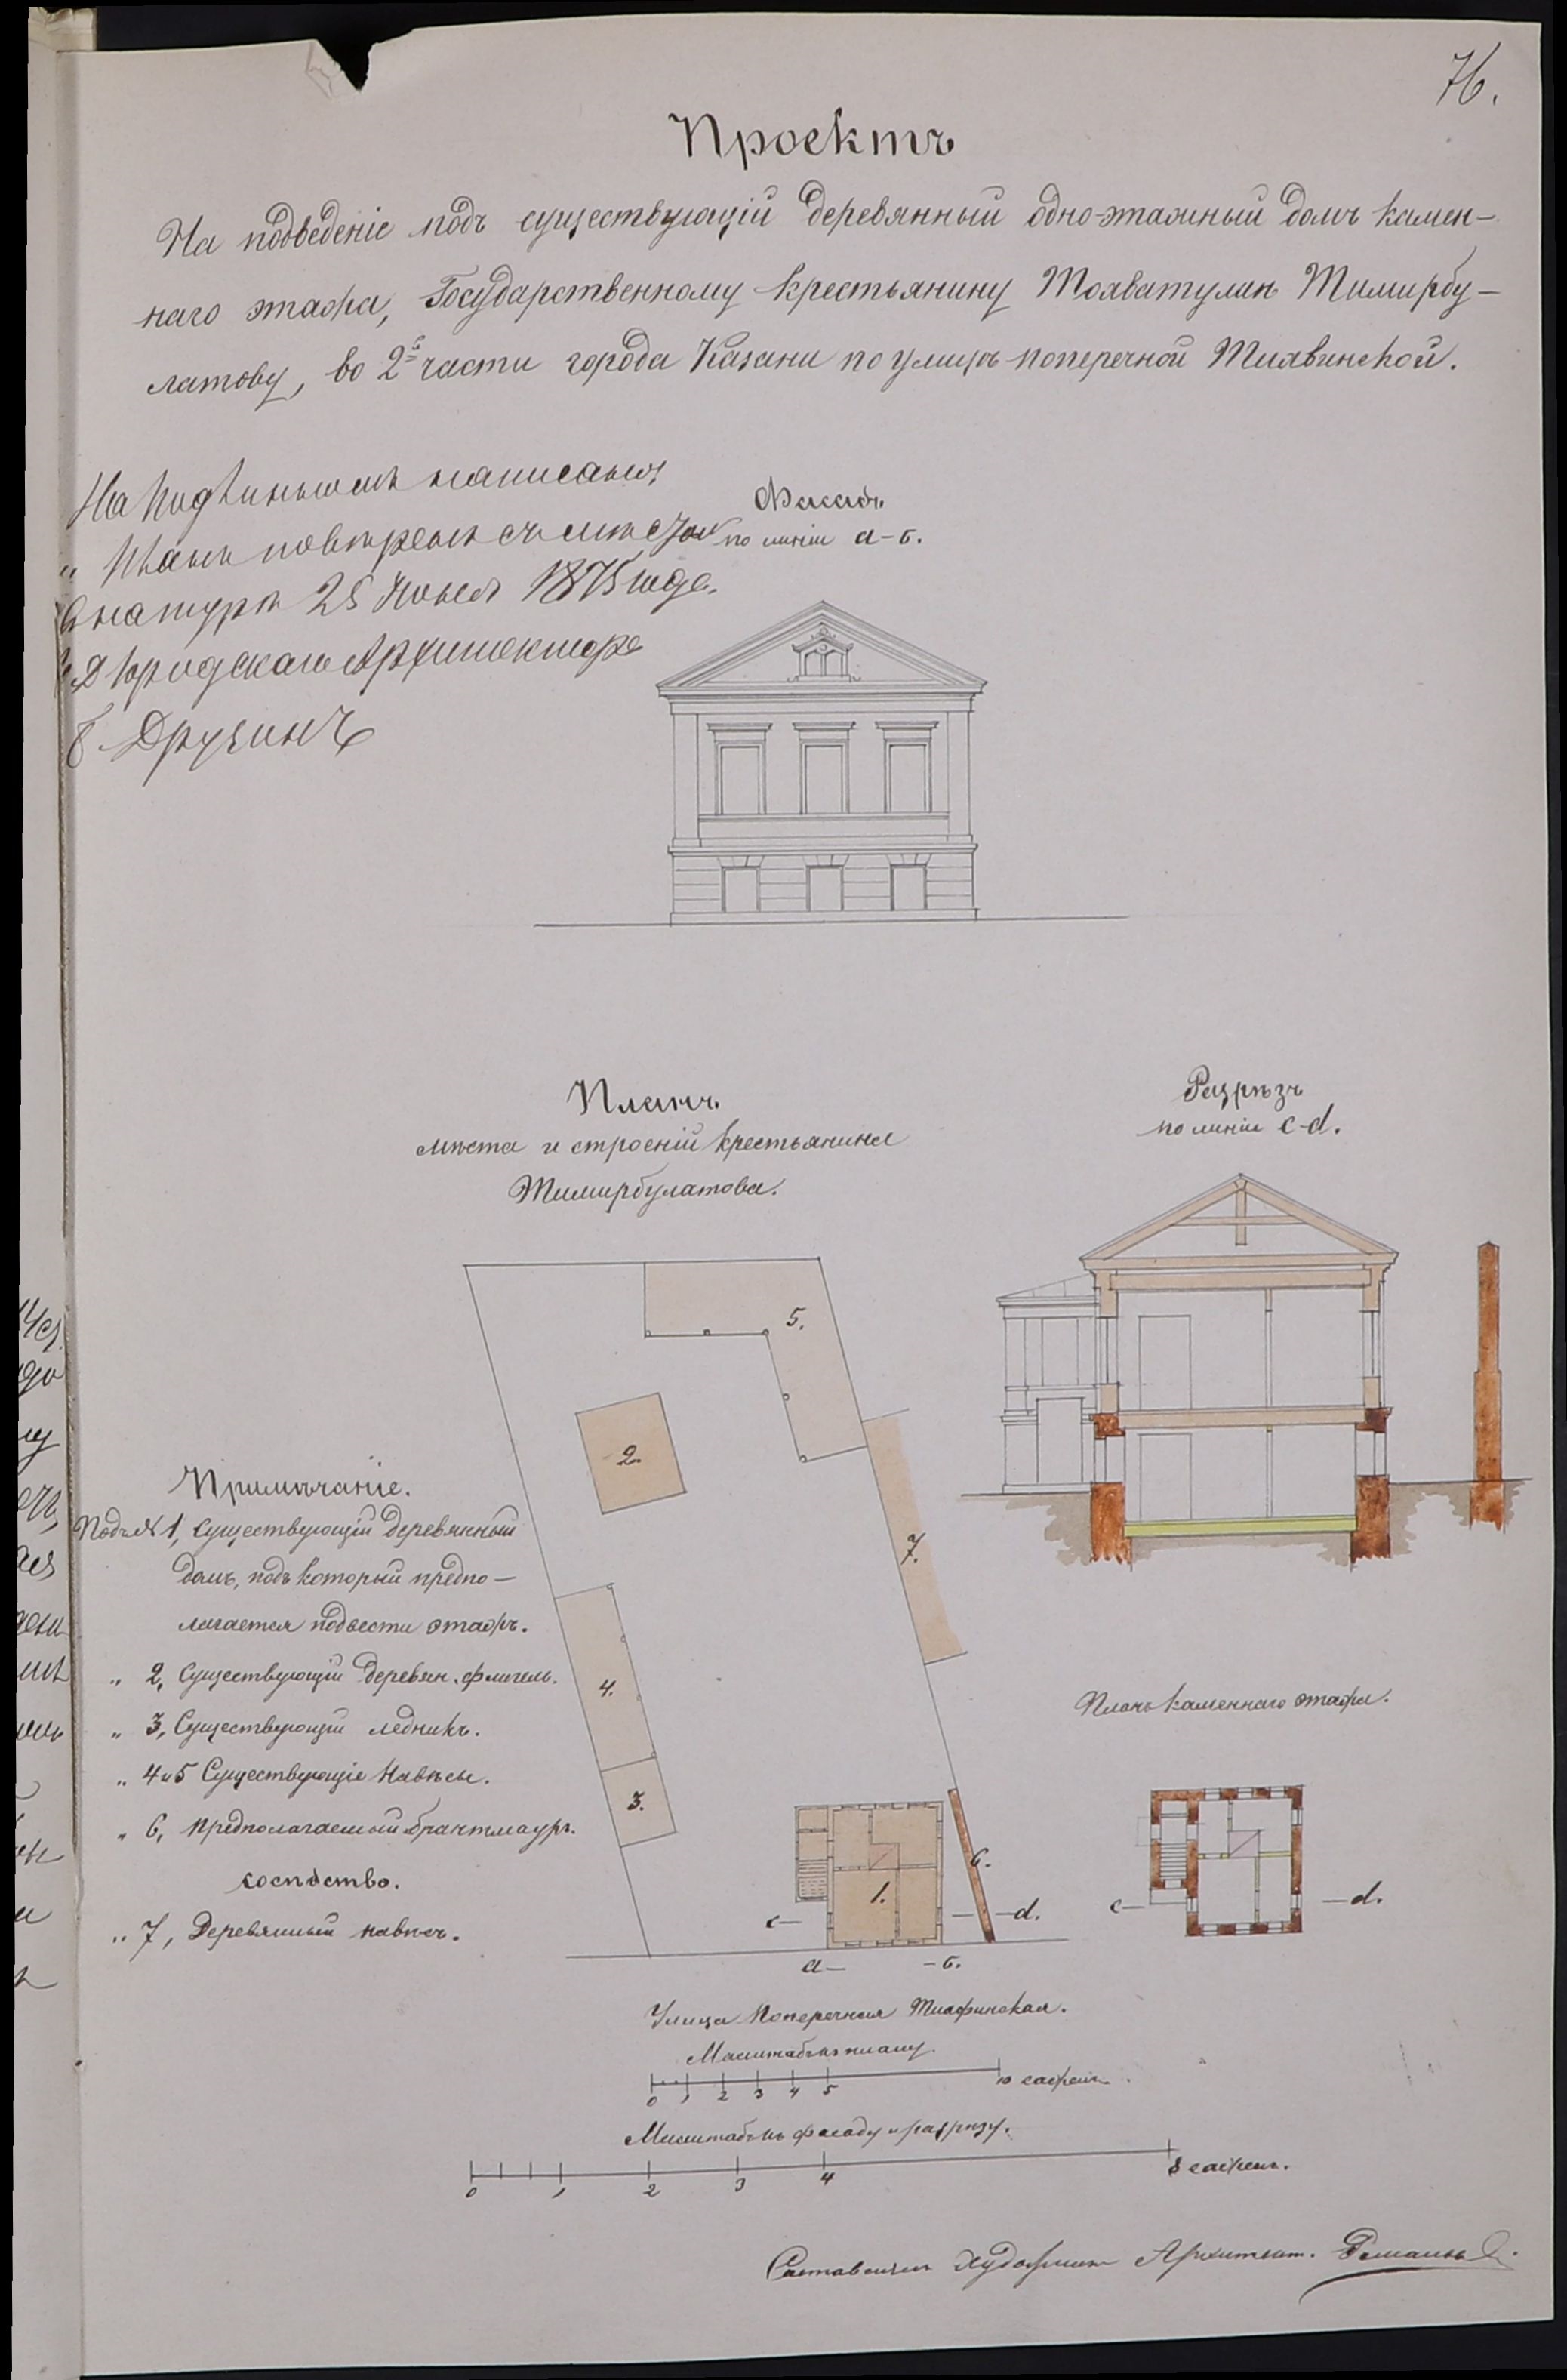 76.
Проектъ
На подведеніе подъ существующій деревянный одно-этажный домъ камен-
наго этажа, Государственному крестьянину Тимирбу-
латову, во 2й части города Казани по улицѣ поперечной Тихвинской.
На подлинномъ написано:
„ Планъ повѣренъ съ мѣстомъ
въ натурѣ 25 Іюня 1875 года.
И Д Городскаго Архитектора
Фасадъ
по линіи а-б.
Планъ
мѣста и строеній крестьянина
Тимирбулатова.
Разрѣзъ
по линіи c-d.
5.
2.
7.
4.
3.
1.
6.
c—
—d.
а—
-б.
Примѣчаніе.
Подъ № 1, Существующій деревянный
домъ, подъ который предпо-
лагается подвести этажъ.
„ 2, Существующій деревян. флигель.
„ 3, Существующій ледникъ.
„ 4 и 5 Существующіе навѣсы.
„ 6, предполагаемый брантмауръ.
сосѣдство.
„ 7, Деревянный навѣсъ.
Планъ каменнаго этажа.
c—
—d.
Улица Поперечная Тихвинская.
Масштабъ къ плану.
0 1 2 3 4 5 10 сажень.
Масштабъ къ фасаду и разрѣзу.
0 1 2 3 4 8 сажень.
Составилъ Художник Архитект. Романов